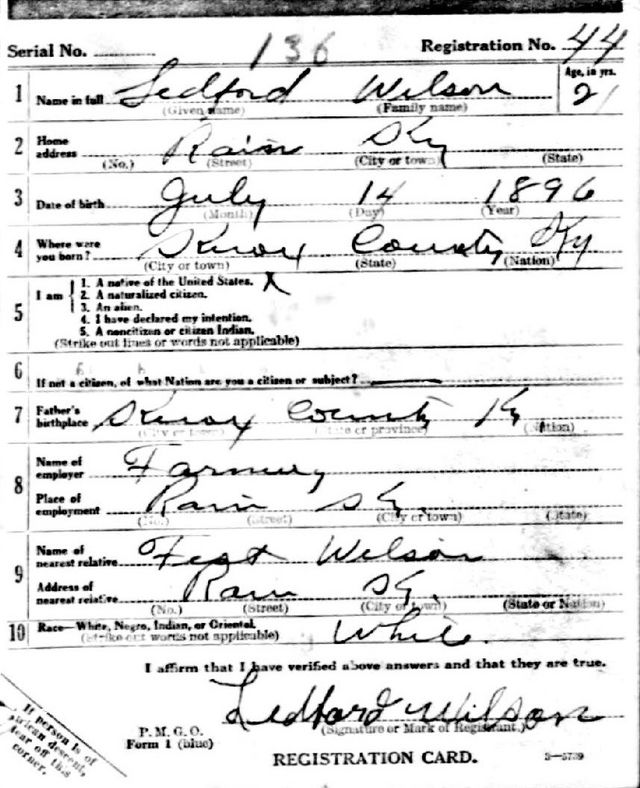 Serial No. 136 Registration No. 44
1 Name in full Ledford Wilson Age, in yrs. 21
(Given name) (Family name)
2 Home address Rain Ky
(No.) (Street) (City or town) (State)
3 Date of birth July 14 1896
(Month) (Day) (Year)
4 Where were you born? Knox County Ky
(City or town) (State) (Nation)
5 I am
1. A native of the United States. X
2. A naturalized citizen.
3. An alien.
4. I have declared my intention.
5. A noncitizen or citizen Indian.
(Strike out lines or words not applicable)
6 If not a citizen, of what Nation are you a citizen or subject?
7 Father's birthplace Knox County Ky
(City or town) (State or province) (Nation)
8 Name of employer Farming
Place of employment Rain Ky.
(No.) (Street) (City or town) (State)
9 Name of nearest relative Wilson
Address of nearest relative Rain Ky.
(No.) (Street) (City or town) (State or Nation)
10 Race—White, Negro, Indian, or Oriental. White.
(Strike out words not applicable)
I affirm that I have verified above answers and that they are true.
Ledford Wilson
(Signature or Mark of Registrant.)
P. M. G. O.
Form 1 (blue)
REGISTRATION CARD. 3—5739
If person is of
African descent,
tear off this
corner.